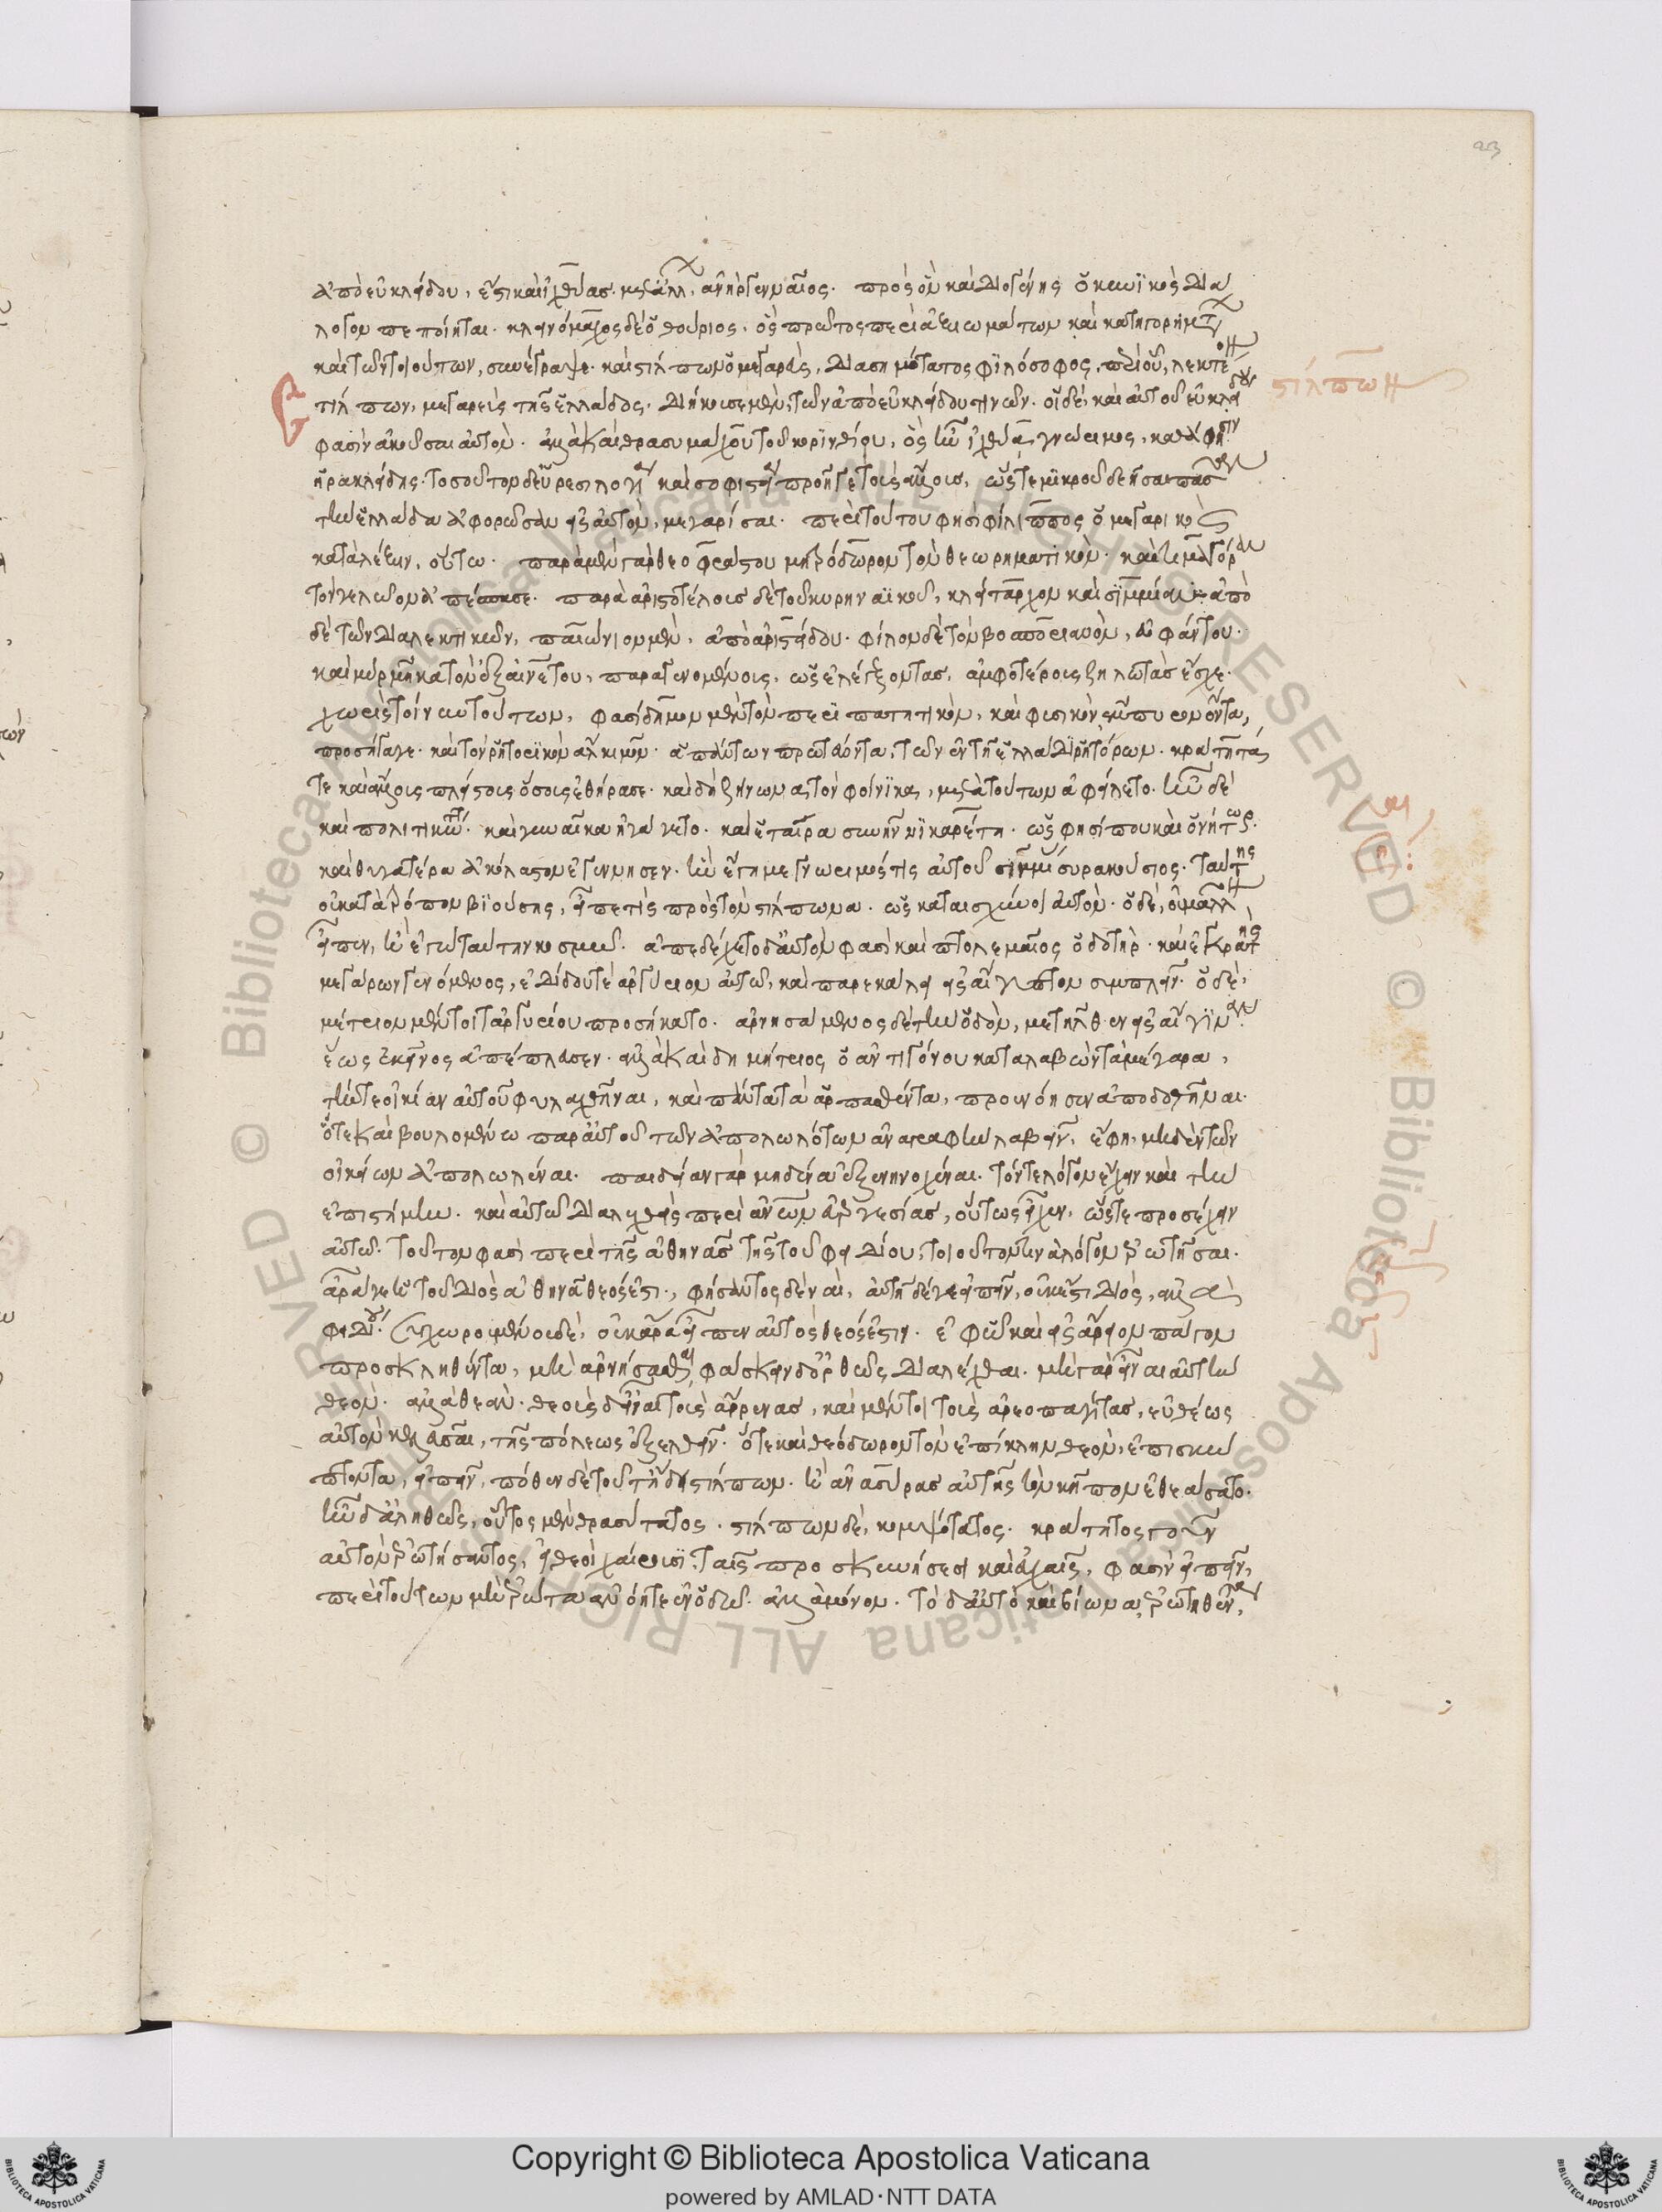 ἀπὸ εὐκλείδου, ἔστι καὶ ἰχθύας μεταλλ, ἀνὴρ γενναῖος. πρὸς ὃν καὶ διογένης ὁ κυνϊκὸς διά
λογον πεποίηται. κλεινόμαχος δὲ ὁ θούριος, ὃς πρῶτος περὶ ἀξιωμάτων καὶ κατηγορημάτ
καὶ τῶν τοιούτων, συνέγραψε. καὶ στίλπων ὁ μεγαρεὺς, διασημότατος φϊλόσοφος, περὶ οὗ λεκτέον
στίλπων
τίλπων, μεγαρεὺς τῆς ἑλλάδος. διήκουσε μὲν, τῶν ἀπὸ εὐκλείδου τινῶν. οἱ δὲ, καὶ αὐτοῦ εὐκλείδου
φασὶν ἀκοῦσαι αὐτόν. ἀλλὰ καὶ θρασυμάχου τοῦ κορϊνθίου, ὃς ἦν ἰχθύα γνώριμος, καθά φησιν
ἡρακλείδης. τοσοῦτον δ' εὑρεσιλογία καὶ σοφιστεία προῆγε τοὺς ἄλλους, ὥστε μϊκροῦ δεῆσαι πᾶσαν
τὴν ἑλλάδα ἀφορῶσαν εἰς αὐτὸν, μεγαρίσαι. περὶ τούτου φησὶ φίλιππος ὁ μεγαρικὸς
κατὰ λέξιν, οὕτω. παρὰ μὲν γὰρ θεοφράστου μητρόδωρον τὸν θεωρηματικὸν. καὶ τιμαγόραν
τὸν γελῶον ἀπέσπασε. παρὰ ἀριστοτέλους δὲ τοῦ κυρηναϊκοῦ, κλείταρχον καὶ σϊμμίαν. ἀπὸ
δὲ τῶν διαλεκτικῶν, παιώνιον μὲν, ἀπὸ ἀριστείδου. φίλον δὲ τὸν βοσποριανὸν, εὐφάντου.
καὶ μύρμηκα τὸν ἐξαινέτου, παραγενομένους, ὡς ἐλέγξοντας, ἀμφοτέρους ζηλωτὰς ἔσχε.
χωρὶς τοίνυν τούτων, φρασίδημον μὲν τὸν περϊπατητικὸν, καὶ φυσικῶν ἔμπυρον ὄντα,
προσήγαγε. καὶ τὸν ῥητορϊκὸν ἄλκιμον. ἁπάντων πρωτεύοντα, τῶν ἐν τῇ ἑλλάδι ῥητόρων. κράτητά
τε καὶ ἄλλους πλείστους ὅσους ἐθήρασε. καὶ δὴ ζήνωνα τὸν φοίνϊκα, μετὰ τούτων ἀφείλετο. ἦν δὲ
καὶ πολιτικώτ. καὶ γυναῖκα ἠγάγετο. καὶ ἑταῖρα συνῆν νϊκαρέτη. ὥς φησί που καὶ ὀνήτωρ.
καὶ θυγατέρα ἀκόλαστον ἐγέννησεν. ἣν ἔγημε γνώριμός τις αὐτοῦ σιμμί συρακούσιος. ταύτης
οὐ κατὰ τρόπον βϊούσης, εἶπέ τις πρὸς τὸν στίλπωνα. ὡς καταισχύνοι αὐτόν. ὁ δὲ, οὐ μᾶλλον
εἶπεν, ἢ ἐγὼ ταύτην κοσμῶ. ἀπεδέχετο δ' αὐτὸν φασὶ καὶ πτολεμαῖος ὁ σωτήρ. καὶ ἐγκρατὴς
μεγάρων γενόμενος, ἐδίδου τε ἀργύριον αὐτῷ, καὶ παρεκάλει εἰς αἴγυπτον συμπλεῖν. ὁ δὲ,
μέτριον μέν τοι τἀργυρίου προσήκατο. ἀρνησάμενος δὲ τὴν ὁδὸν, μετῆλθεν εἰς αἴγϊναν
ἕως ἐκεῖνος ἀπέπλευσεν. ἀλλὰ καὶ δημήτριος ὁ ἀντιγόνου καταλαβὼν τὰ μέγαρα,
τήν τε οἰκίαν αὐτοῦ φυλαχθῆναι, καὶ πάντα τὰ ἁρπασθέντα, προυνόησεν ἀποδοθῆναι.
ὅτε καὶ βουλομένω παρ' αὐτοῦ τῶν ἀπολωλότων ἀναγραφὴν λαβεῖν, ἔφη, μηδὲν τῶν
οἰκείων ἀπολωλέναι. παιδείαν γὰρ μηδένα ἐξενηνοχέναι. τόν τε λόγον ἔχειν καὶ τὴν
ἐπιστήμην. καὶ αὐτῷ διαλεχθεὶς περὶ ἀνων εὐεργεσίας, οὕτως εἷλεν, ὥστε προσέχειν
αὐτῷ. τοῦτον φασὶ περὶ τῆς ἀθηνᾶς τῆς τοῦ φειδίου, τοιοῦτόν τινα λόγον ἐρωτῆσαι.
ἆρά γε ἡ τοῦ διὸς ἀθηνᾶ θεός ἐστι, φήσαντος δὲ ναὶ, αὕτη δέ γε εἶπεν, οὐκ ἔστι διὸς, ἀλλὰ
φειδίου. συγχωρουμένου δὲ, οὐκ ἄρα εἶπεν αὐτὸς θεός ἐστιν. ἐφ' ᾧ καὶ εἰς ἄρειον πάγον
προσκληθέντα, μὴ ἀρνήσασθαι, φάσκειν δ' ὀρθῶς διειλέχθαι. μὴ γὰρ εἶναι αὐτὴν
θεόν. ἀλλὰ θεάν. θεοὺς δ' εἶναι τοὺς ἄρρενας, καὶ μέν τοι τοὺς ἀρεοπαγίτας, εὐθέως
αὐτὸν κελεῦσαι, τῆς πόλεως ἐξελθεῖν. ὅτε καὶ θεόδωρον τὸν ἐπίκλην θεὸν, ἐπισκώ
πτοντα, εἰπεῖν, πόθεν δὲ τοῦτ' ᾔδει στίλπων. ἢ ἀνασύρας αὐτῆς τὸν κῆπον ἐθεάσατο.
ἦν δ' ἀληθῶς, οὗτος μὲν θρασύτατος. στίλπων δὲ, κομψότατος. κράτητος γοῦν
αὐτὸν ἐρωτήσαντος, εἰ θεοὶ χαίρουσϊ ταῖς προσκυνήσεσι καὶ εὐχαῖς, φασὶν εἰπεῖν,
περὶ τούτων μὴ ἐρώτα ἀνόητε ἐν ὁδῷ. ἀλλὰ μόνον. τὸ δ' αὐτὸ καὶ βίωνα ἐρωτηθέντα,